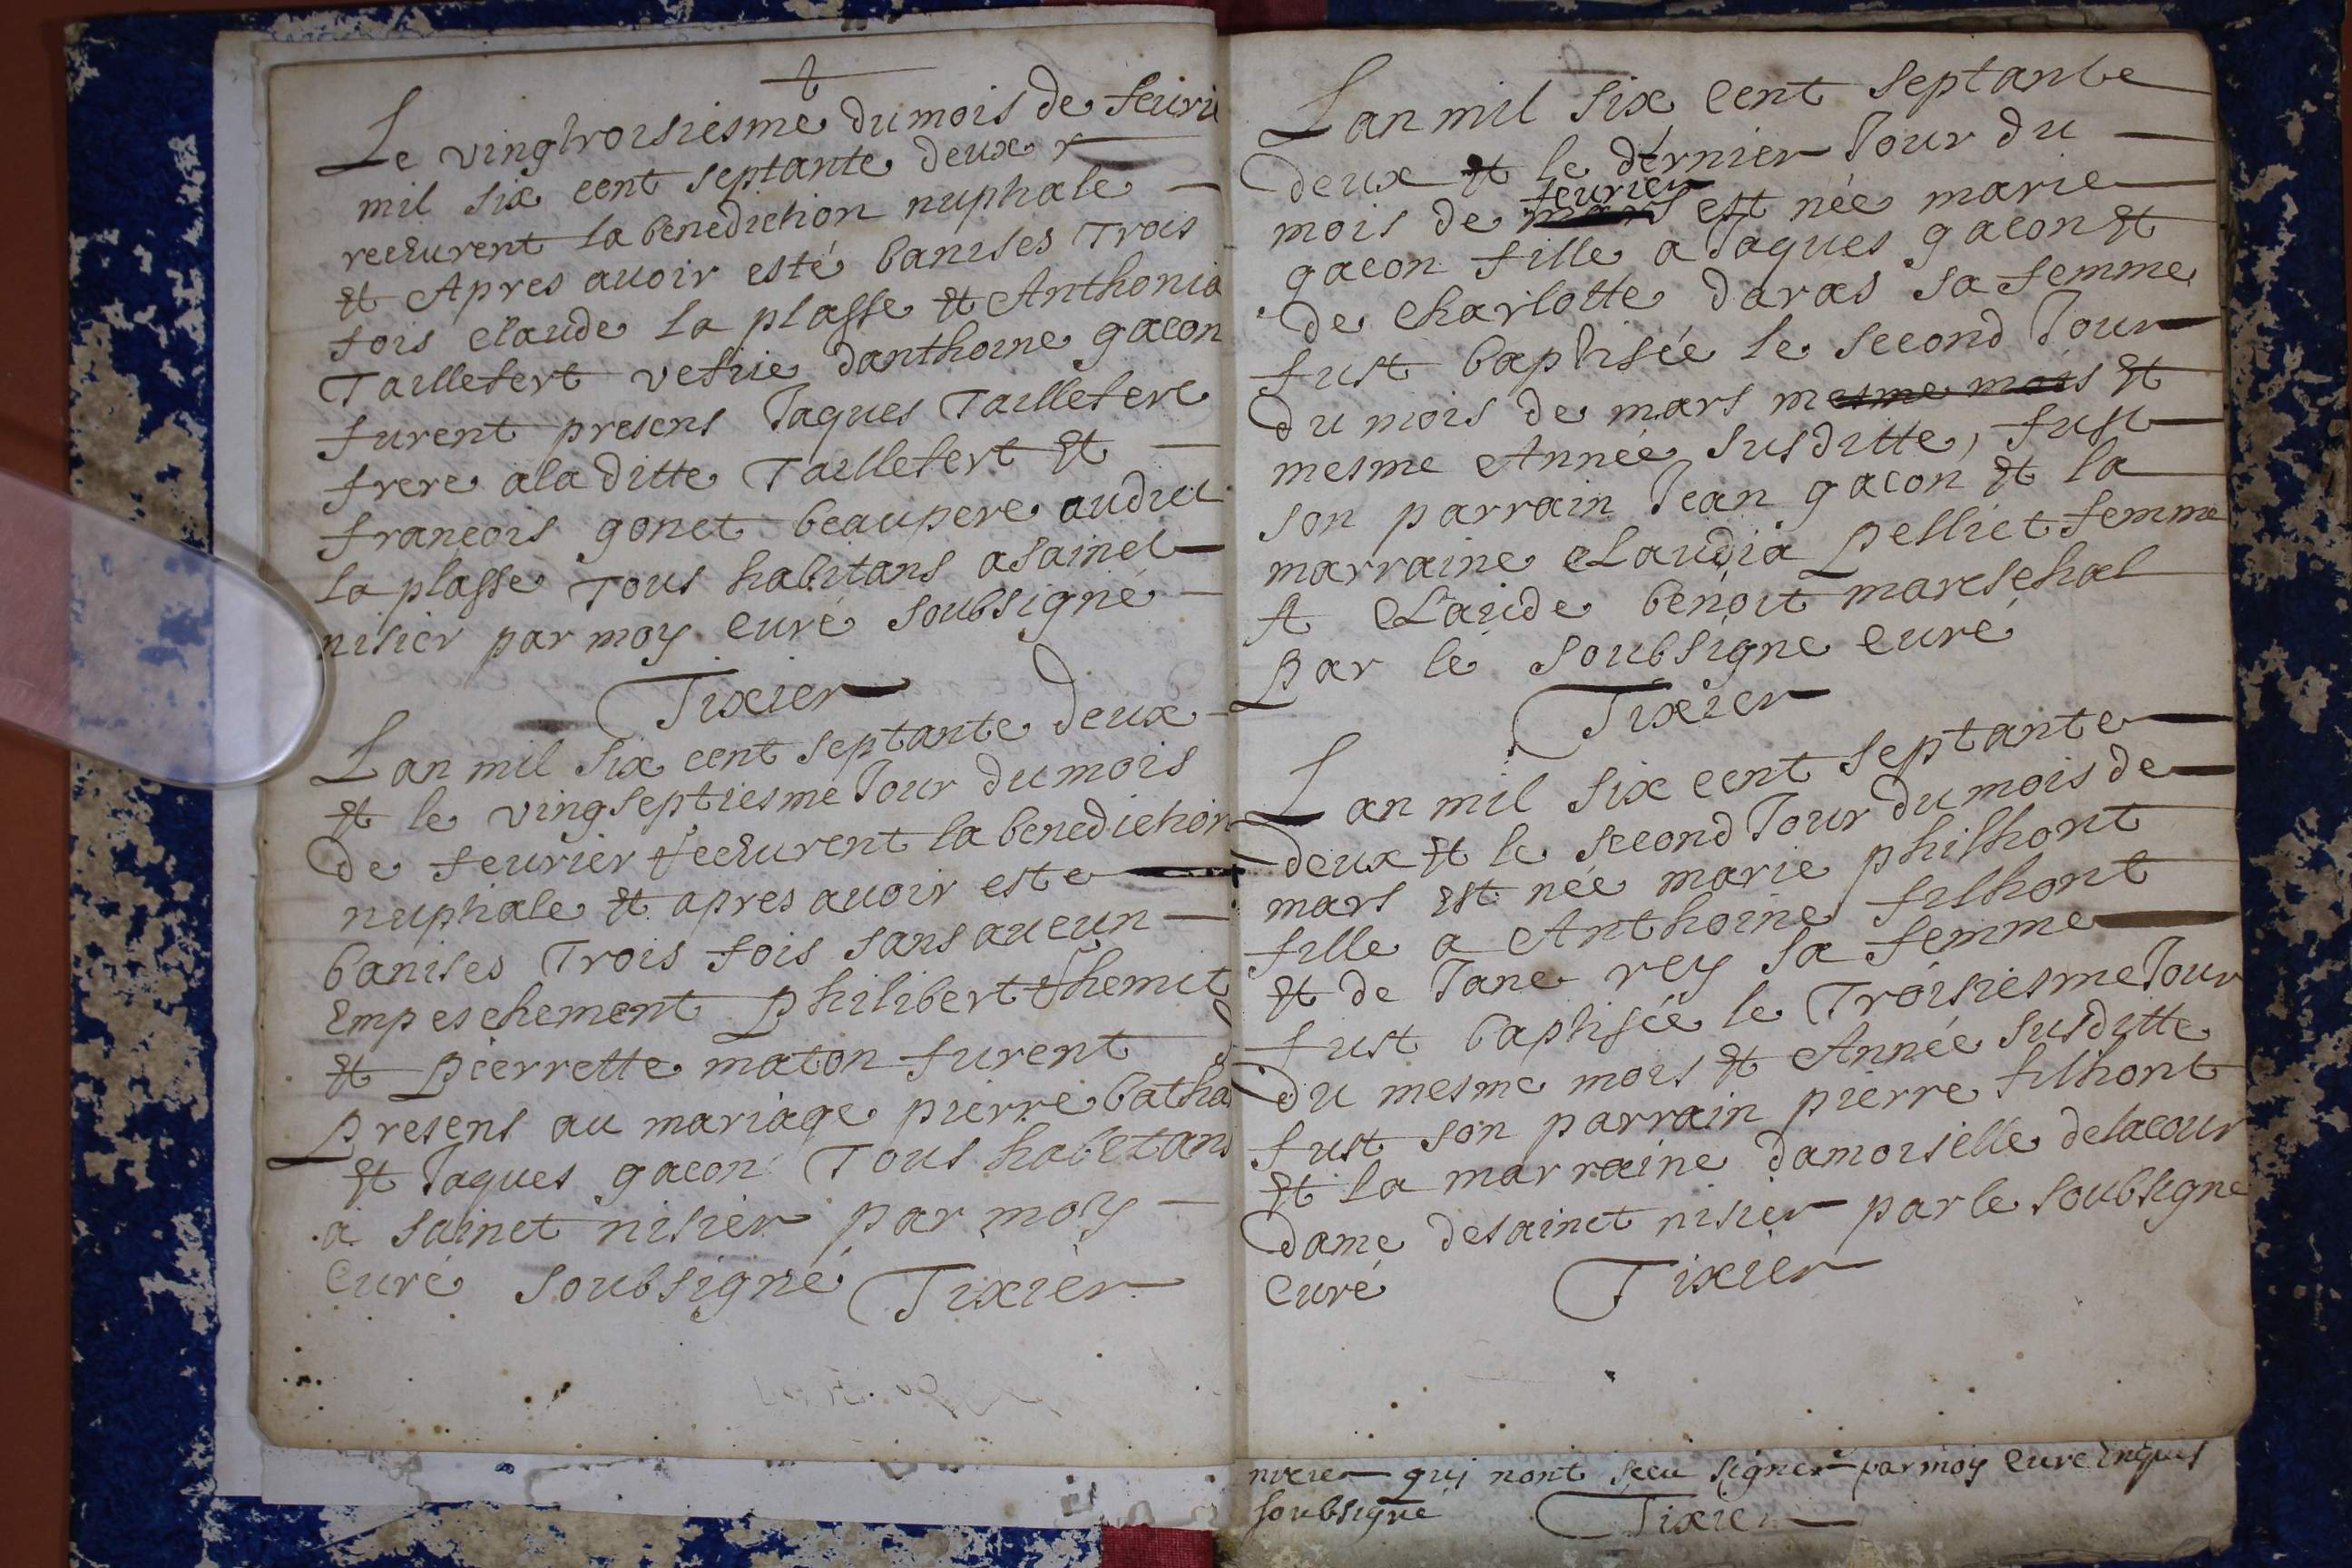 Le vingtroisiesme du mois de feuri
mil six cent septante deux
receurent la benediction nuptiale
et Apres auoir esté banises Trois
fois claude la plasse et Anthonia
Taillefert vefue danthoine gacon
furent presens Jaques Taillefert
frere a la ditte Taillefert et
francois gonet beaupere audict
la plasse Tous habitans a sainct
nisier par moy curé soubsigné
Tixier
Lan mil six cent septante deux
et le vingseptiesme Jour du mois
de feurier receurent la benediction
nuptiale et apres auoir esté
banises Trois fois sans aucun
Empeschement Philibert
et Pierrette maton furent
Presens au mariage pierre batha
et Jaques gacon Tous habitans
a sainct nisier par moy
Curé soubsigné Tixier
Lan mil six cent septante
deux et le dernier Jour du
mois de feurier est née marie
gacon fille a Jaques gacon et
de charlotte daras sa femme
fust baptisée le second Jour
du mois de mars mesme mois et
mesme Année susditte, fust
son parrain Jean gacon et la
marraine claudia Pelliet femme
A Claude benoit mareschal
Par le soubsigne curé
Tixier
Lan mil six cent septante
deux et le second Jour du mois de
mars est née marie philhont
fille a Anthoine filhont
et de Jane rey sa femme
fust baptisée le Troisiesme Jour
du mesme mois et Année susditte
fust son parrain pierre filhont
et la marraine damoiselle delacour
dame de sainct nisier par le soubsigne
Curé Tixier
nizier quj nont sceu signer par moy Curé
soubsigné Tixier